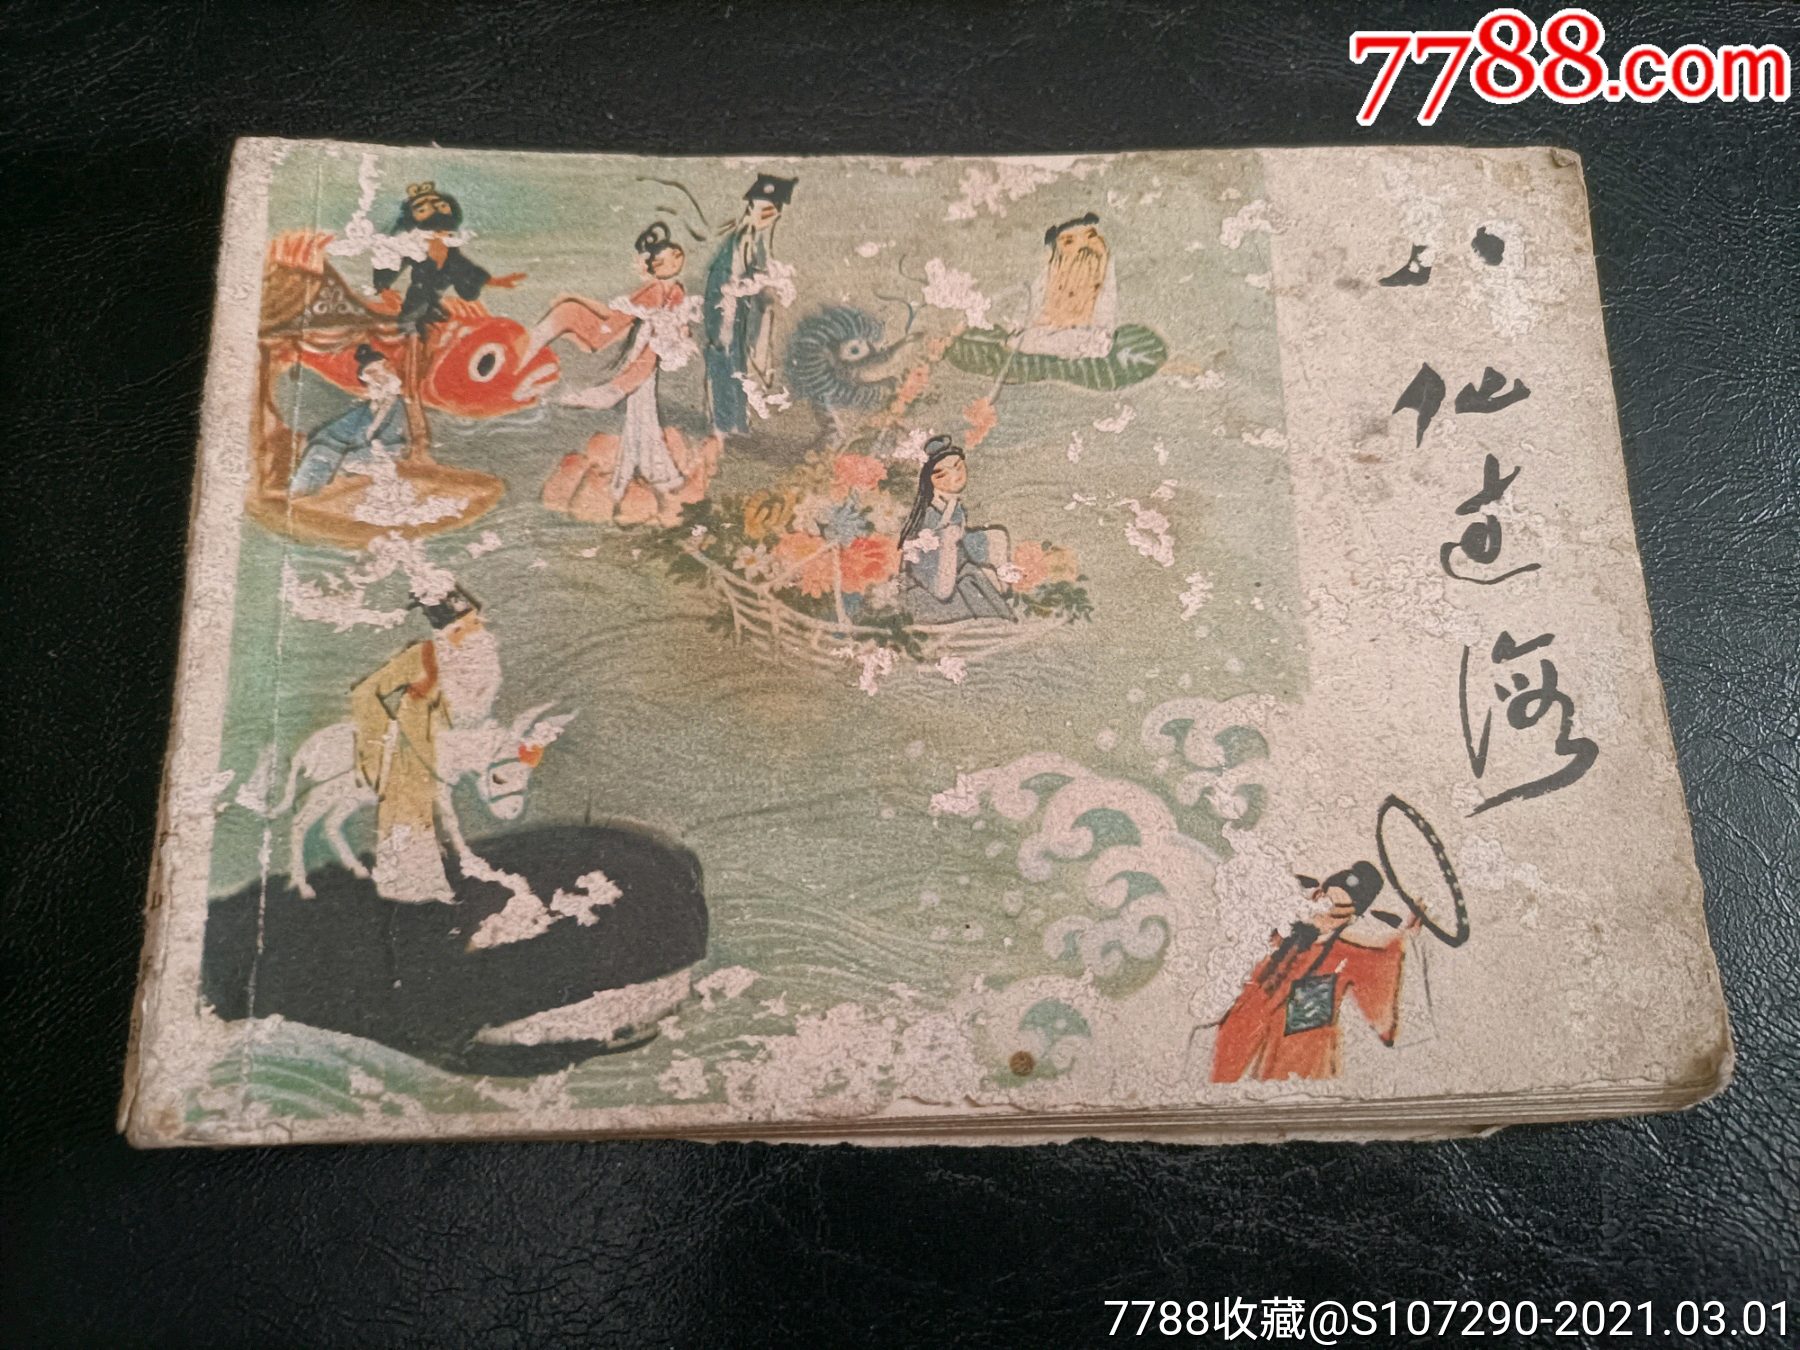 7788.com
八仙过海
7788收藏@S107290-2021.03.01